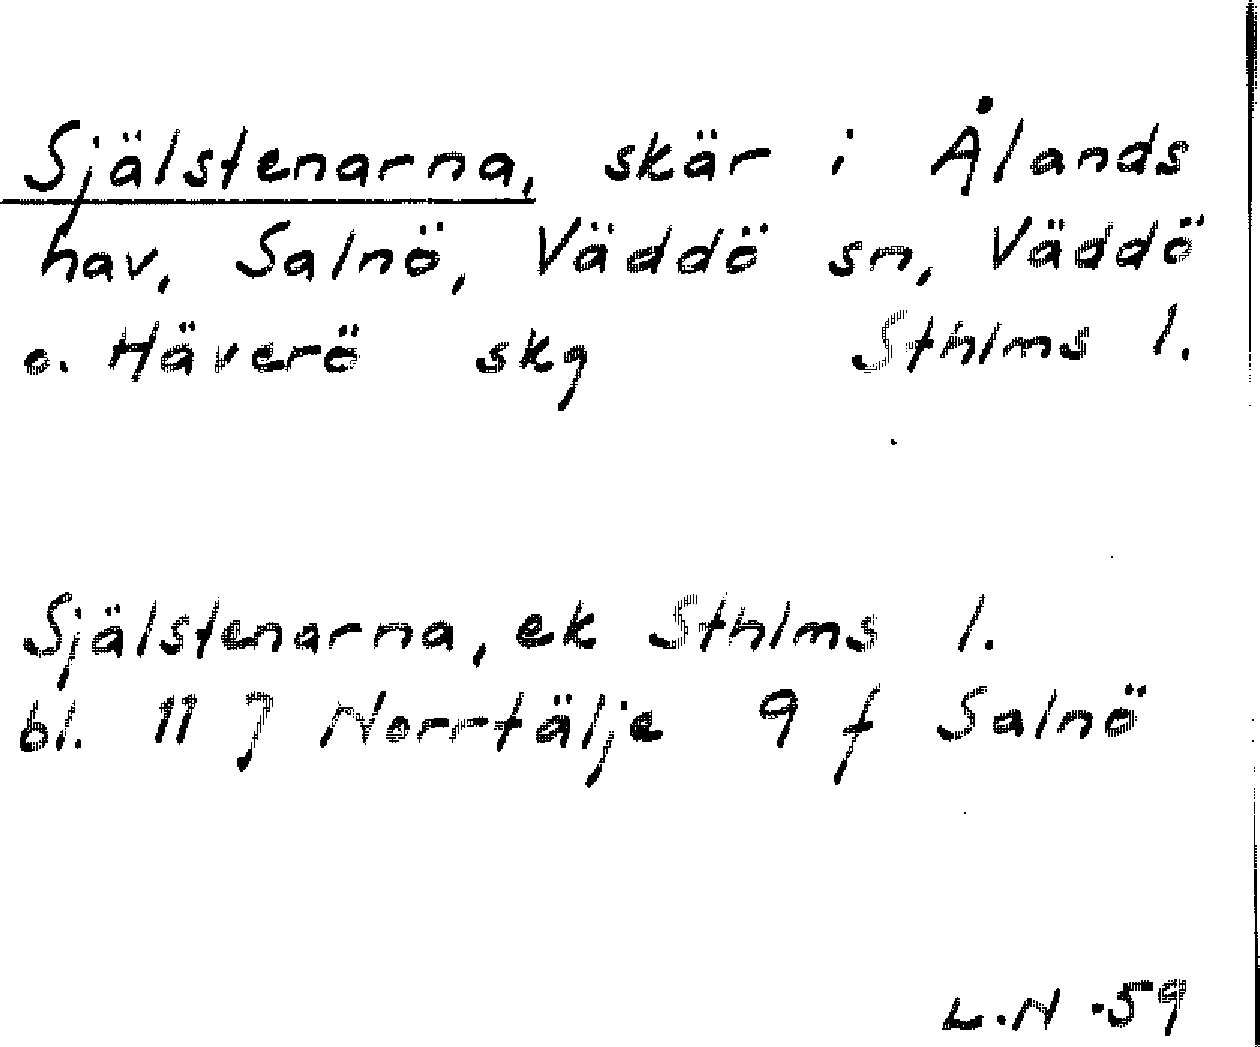 Själstenarna, skär i Ålands
hav, Salnö, Väddö sn, Väddö
o. Häverö skg Sthlms l.
Själstenarna, ek Sthlms l.
bl. 11 J Norrtälje 9 f Salnö
L.N -59